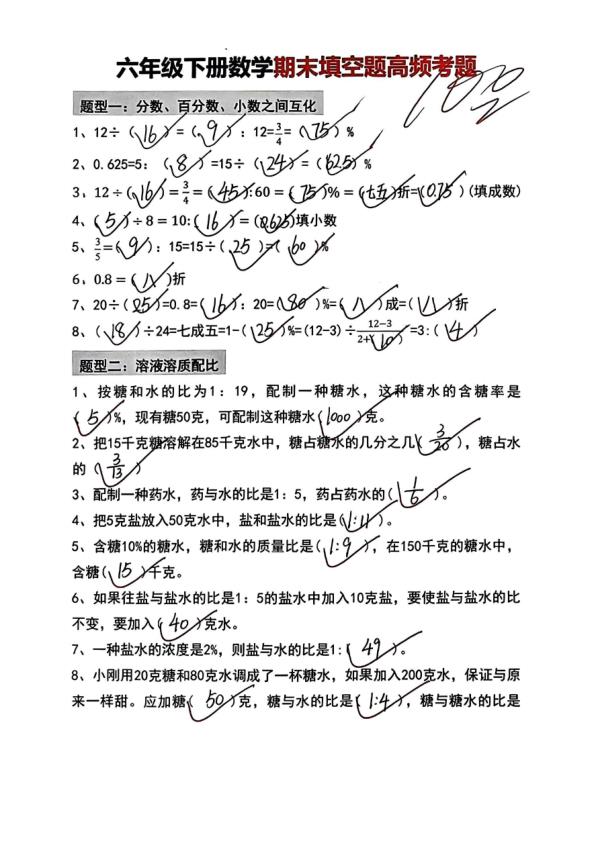 六年级下册数学期末填空题高频考题
100
题型一：分数、百分数、小数之间互化
1、12÷（16）=（9）：12=3/4=（75）%
2、0.625=5：（8）=15÷（24）=（62.5）%
3、12÷(16)=3/4=(45):60=(75)%=(七五)折=(0.75)(填成数)
4、(5)÷8=10:(16)=(0.625)填小数
5、3/5=(9)：15=15÷（25）=（60）%
6、0.8=(八)折
7、20÷(25)=0.8=(16)：20=(80)%=(八)成=(八)折
8、(18)÷24=七成五=1-(25)%=(12-3)÷12-3/2+(10)=3:(4)
题型二：溶液溶质配比
1、按糖和水的比为1：19，配制一种糖水，这种糖水的含糖率是
(5)%，现有糖50克，可配制这种糖水(1000)克。
2、把15千克糖溶解在85千克水中，糖占糖水的几分之几(3/20)，糖占水
的（3/13）
3、配制一种药水，药与水的比是1：5，药占药水的(1/6)。
4、把5克盐放入50克水中，盐和盐水的比是(1:11)。
5、含糖10%的糖水，糖和水的质量比是(1:9)，在150千克的糖水中，
含糖(15)千克。
6、如果往盐与盐水的比是1：5的盐水中加入10克盐，要使盐与盐水的比
不变，要加入(40)克水。
7、一种盐水的浓度是2%，则盐与水的比是1:(49)。
8、小刚用20克糖和80克水调成了一杯糖水，如果加入200克水，保证与原
来一样甜。应加糖(50)克，糖与水的比是(1:4)，糖与糖水的比是